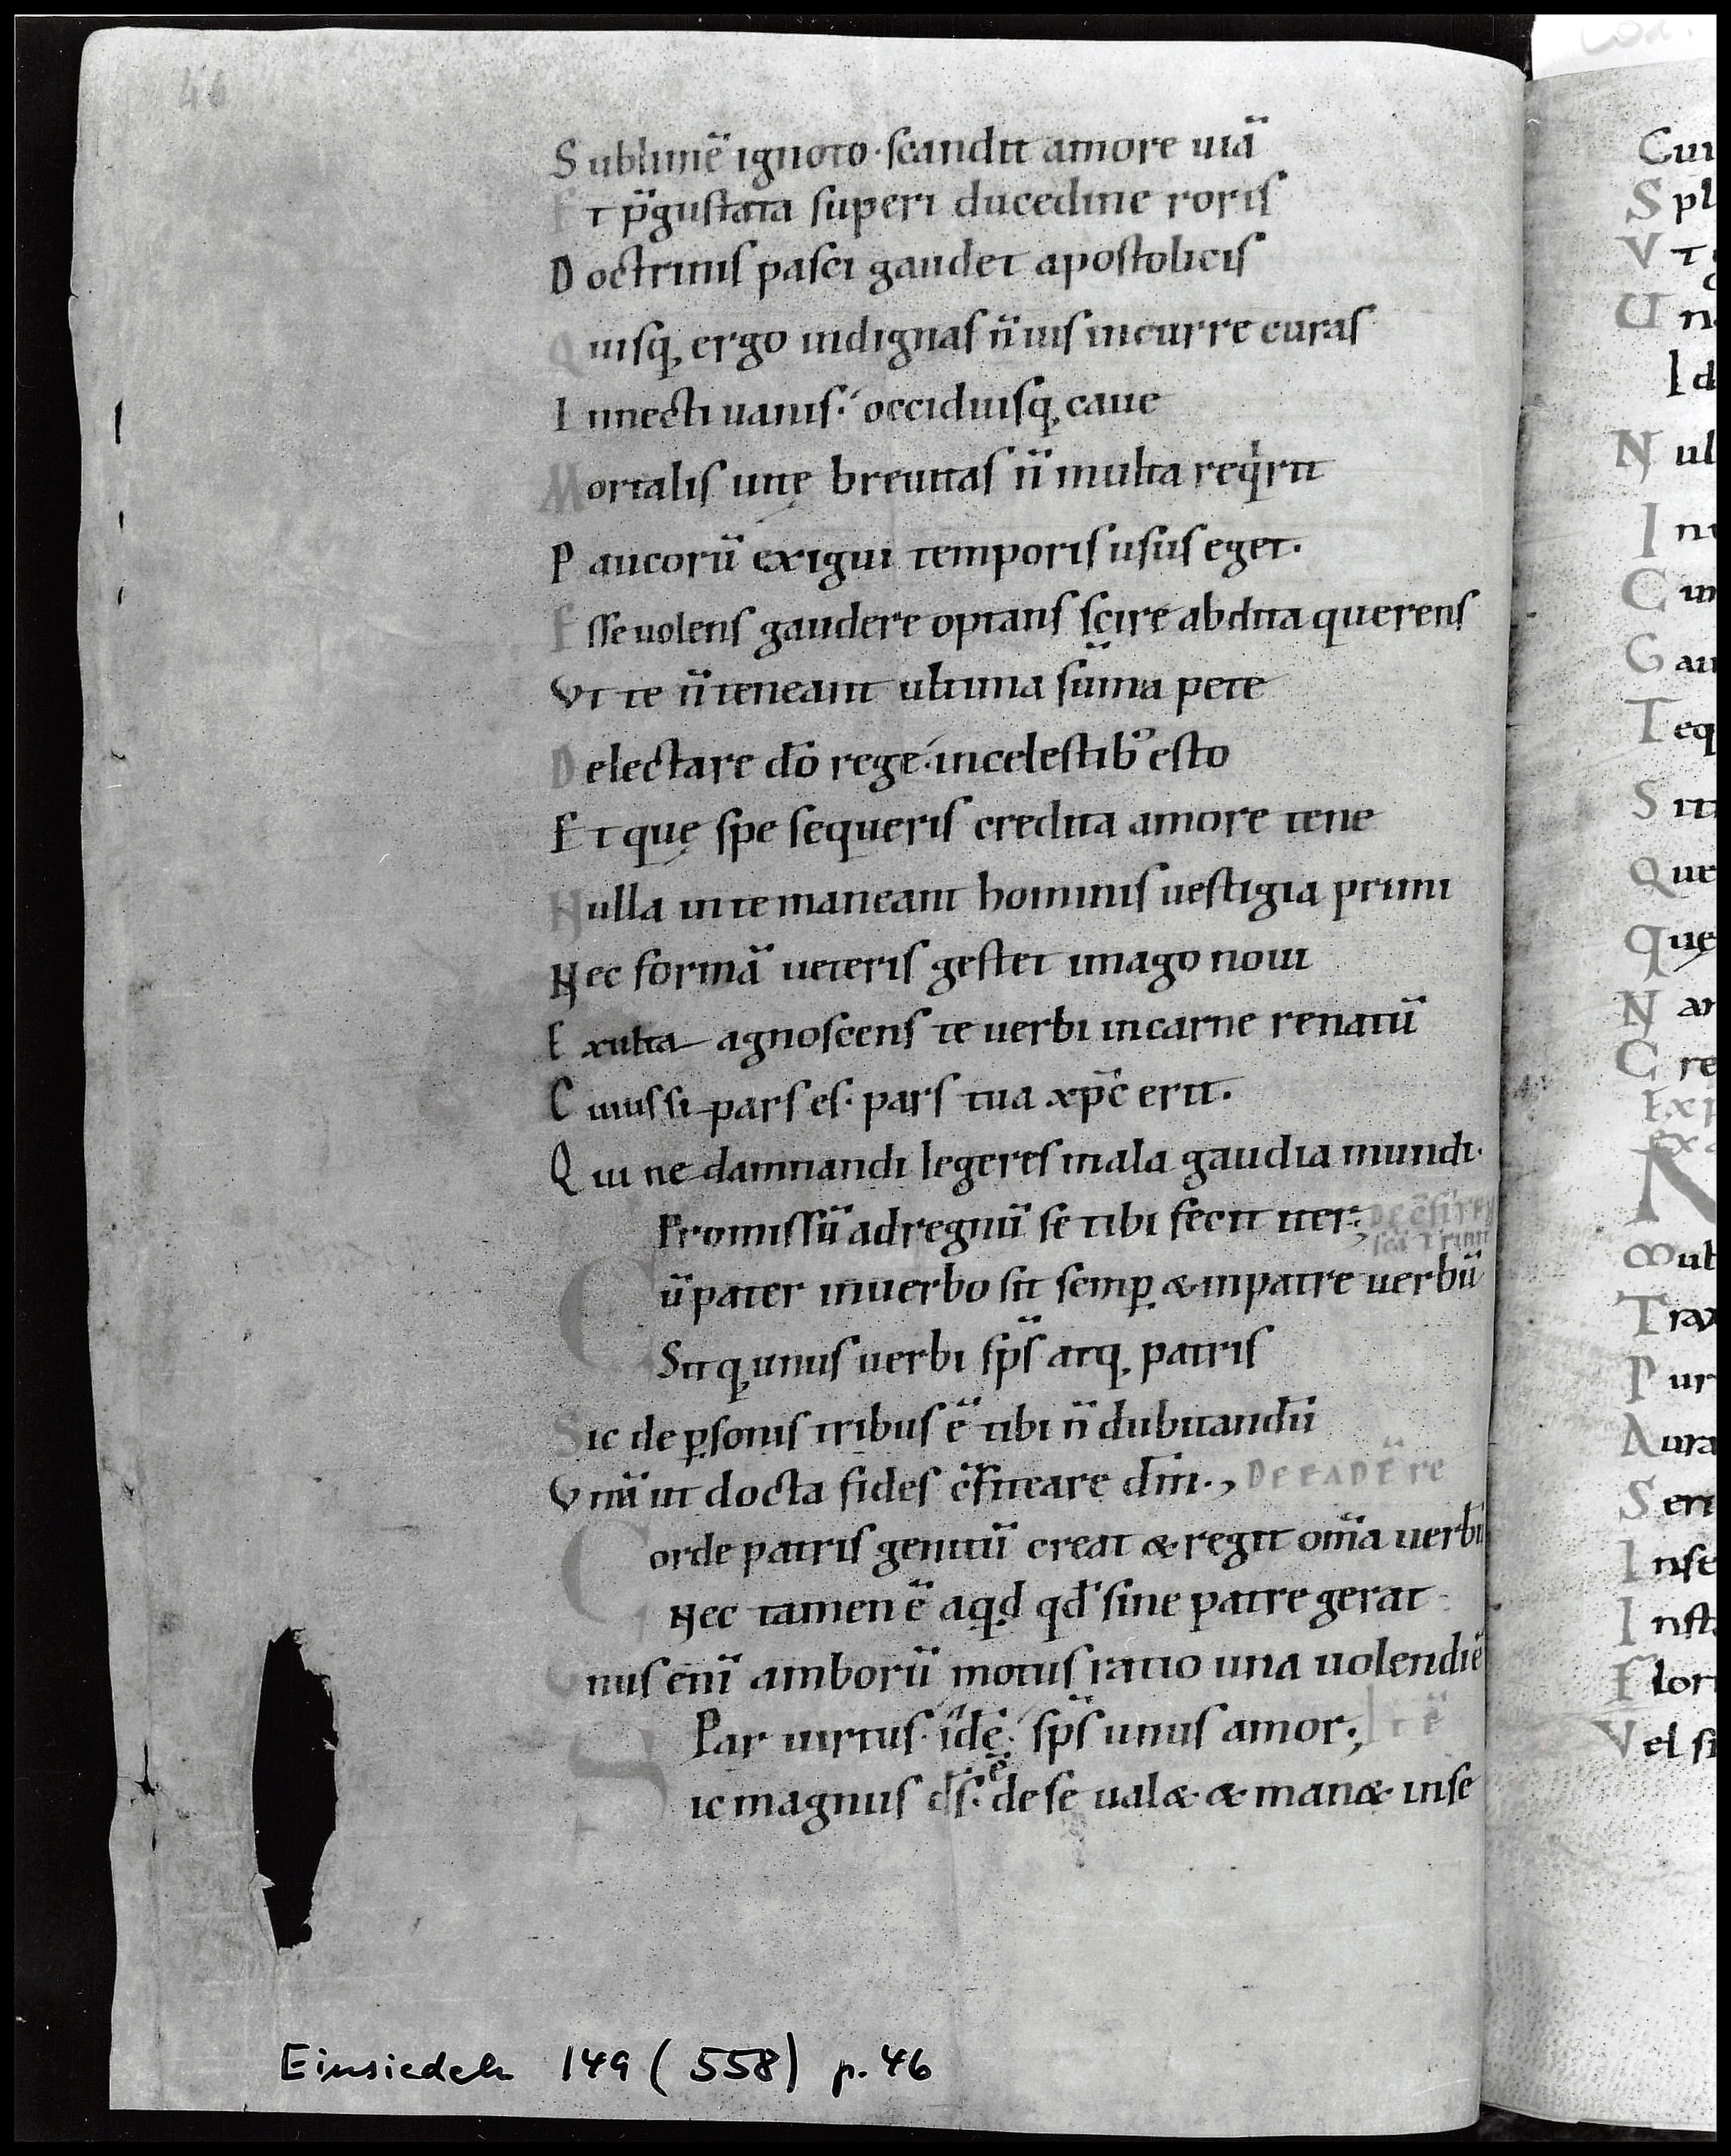 46
Sublimē ignoto · scandit amore uiā
Et p̄gustata superi ducedine roris
Doctrinis pasci gaudet apostolicis
Quisq, ergo indignas n̄ uis incurre curas
Innecti uanis · occiduisq, caue
Mortalis uitę breuitas n̄ multa req̇rit
Paucorū exigui temporis usus eget.
Esse uolens gaudere optans scire abdita querens
Vt te n̄ teneant ultima sūma pete
Delectare dō rege · in celestib' esto
Et quę spe sequeris credita amore tene
Nulla in te maneant hominis uestigia primi
Nec formā ueteris gestet imago noui
Exulta agnoscens te uerbi in carne renatū
Cuius si pars es · pars tua xp̄c erit.
Qui ne damnandi legeres mala gaudia mundi.
Promissū ad regnū se tibi fecit iter;
Cū pater in uerbo sit semp & in patre uerbū
Sitq, unus uerbi sp̄s atq, patris
Sic de psonis tribus ē tibi n̄ dubitandū
Vnū ut docta fides c̄fiteare dm̄ ·, DE EADĒ re
Corde patris genitū creat & regit om̄a uerbū
Nec tamen ē aqd qd̄ sine patre gerat
Vnus enī amborū motus ratio una uolendi ē
Par uirtus · idē · sp̄s unus amor; Itē
Sic magnus ds̄ · ē de se ual& & man& in se
Einsiedeln 149 (558) p. 46
Cui
Spl
Vt
Un
Id
Nul
In
C
Gau
Teq
Sit
Que
Quę
N
Cre
Exp
N
Mul
Tra
Pur
Aura
Seri
Inse
Inst
Flor
Vel si